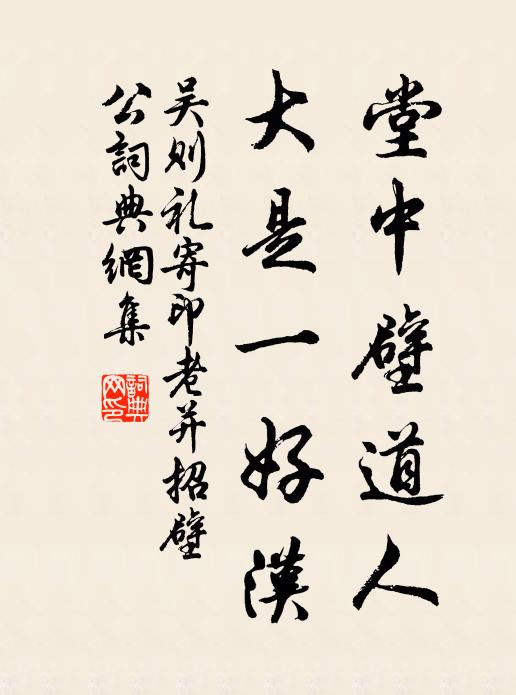 堂中壁道人
大是一好漢
吳則礼寄印老并招壁
公詞典網集
詞典网印